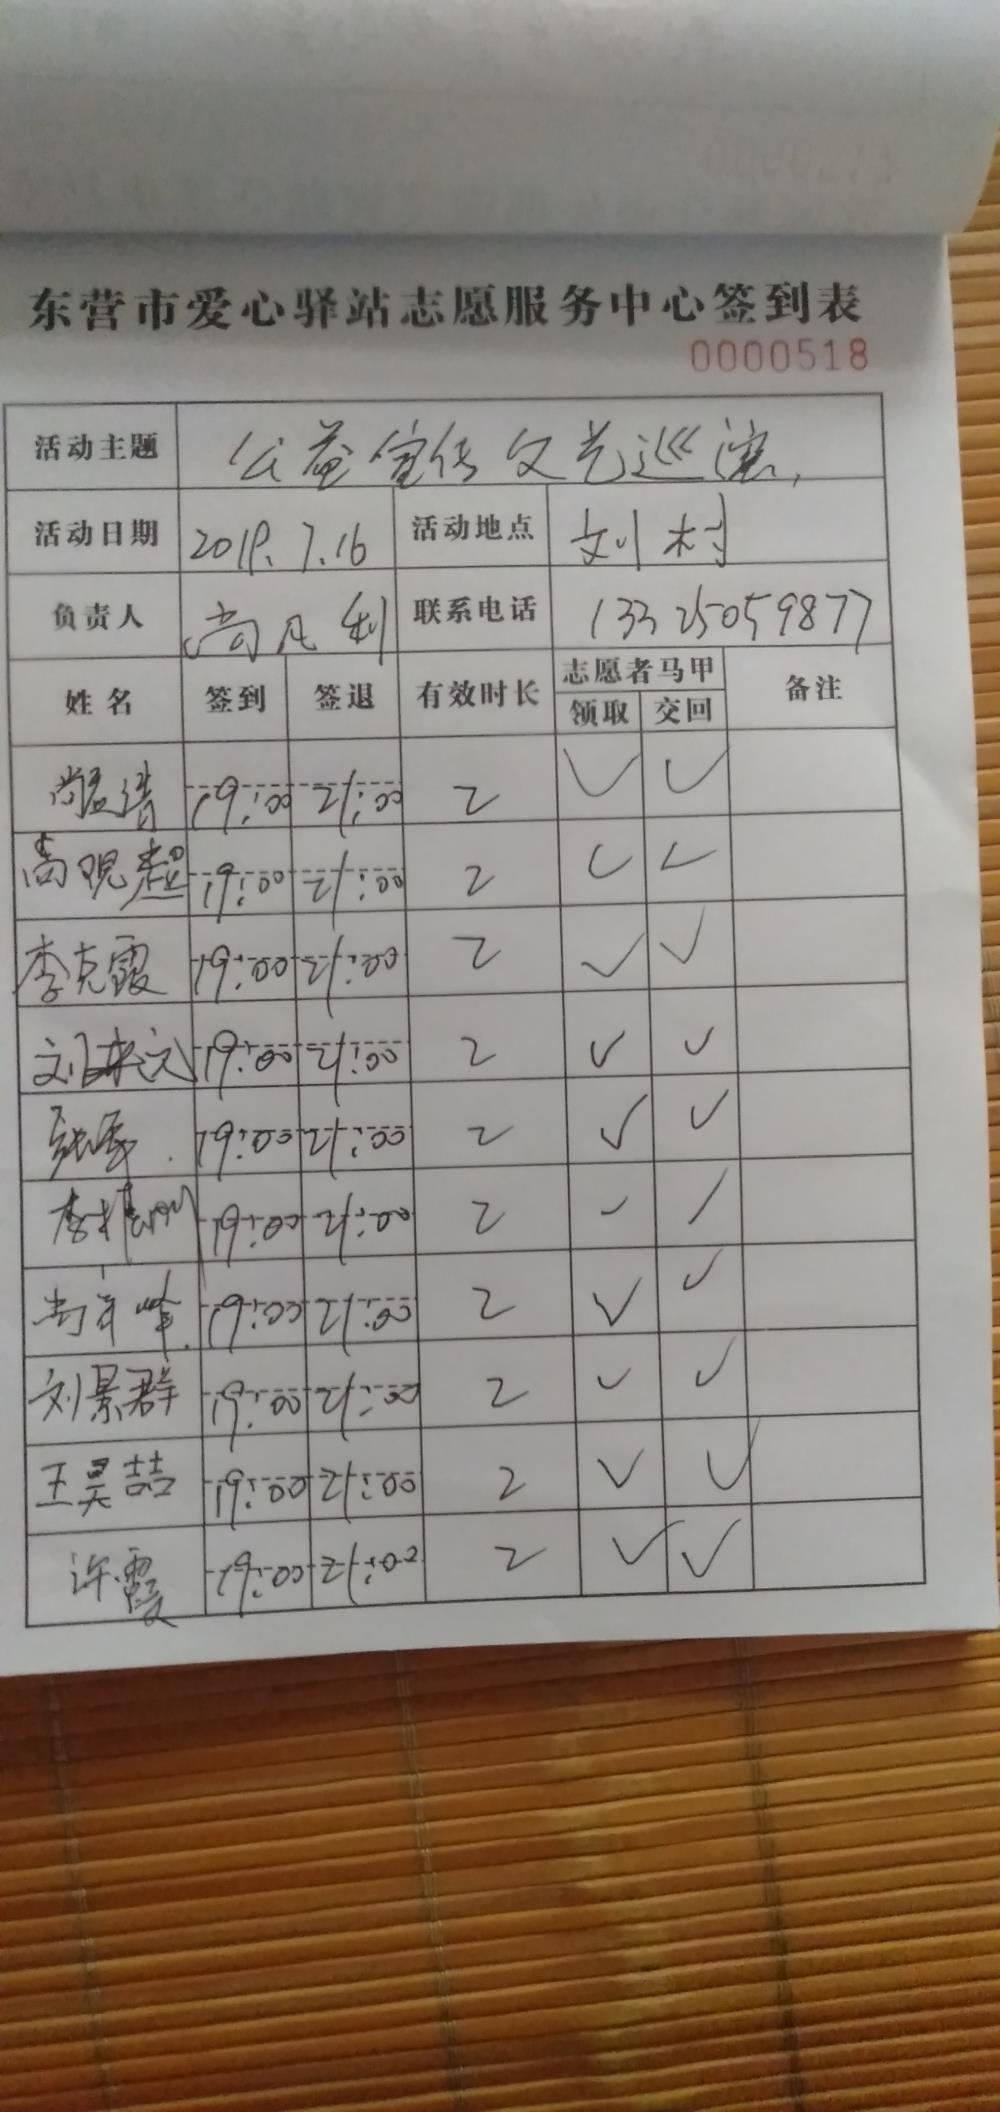 东营市爱心驿站志愿服务中心签到表
0000518
活动主题 公益宣传文艺巡演
活动日期 2019.7.16 活动地点 刘村
负责人 尚凡利 联系电话 13325059877
姓名 签到 签退 有效时长 志愿者马甲 备注
领取 交回
19:00 21:00 2 ✓ ✓
高观超 19:00 21:00 2 ✓ ✓
李克霞 19:00 21:00 2 ✓ ✓
19:00 21:00 2 ✓ ✓
19:00 21:00 2 ✓ ✓
19:00 21:00 2 ✓ ✓
19:00 21:00 2 ✓ ✓
刘景群 19:00 21:00 2 ✓ ✓
王昊喆 19:00 21:00 2 ✓ ✓
许霞 19:00 21:02 2 ✓ ✓